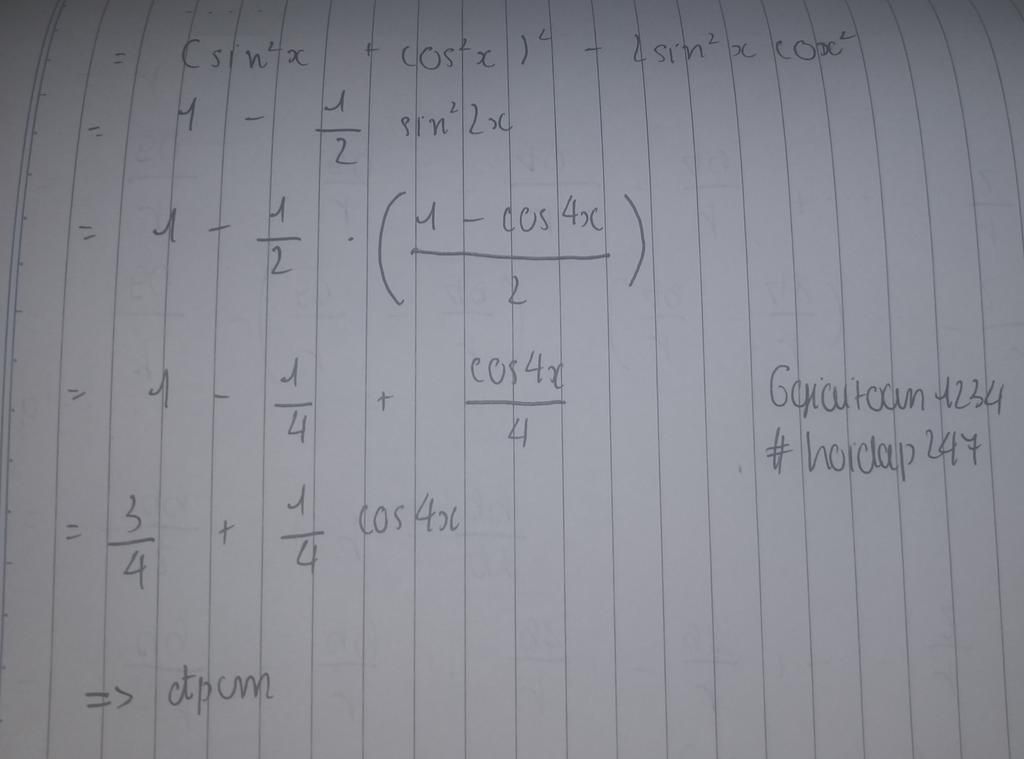 = (sin²x + cos²x)² - 2sin²x cox²
= 1 - 1/2 sin²2x
= 1 - 1/2 . (1 - cos4x / 2)
= 1 - 1/4 + cos4x/4
Ggiaitoan1234
# hoidap247
= 3/4 + 1/4 cos4x
=> đpcm